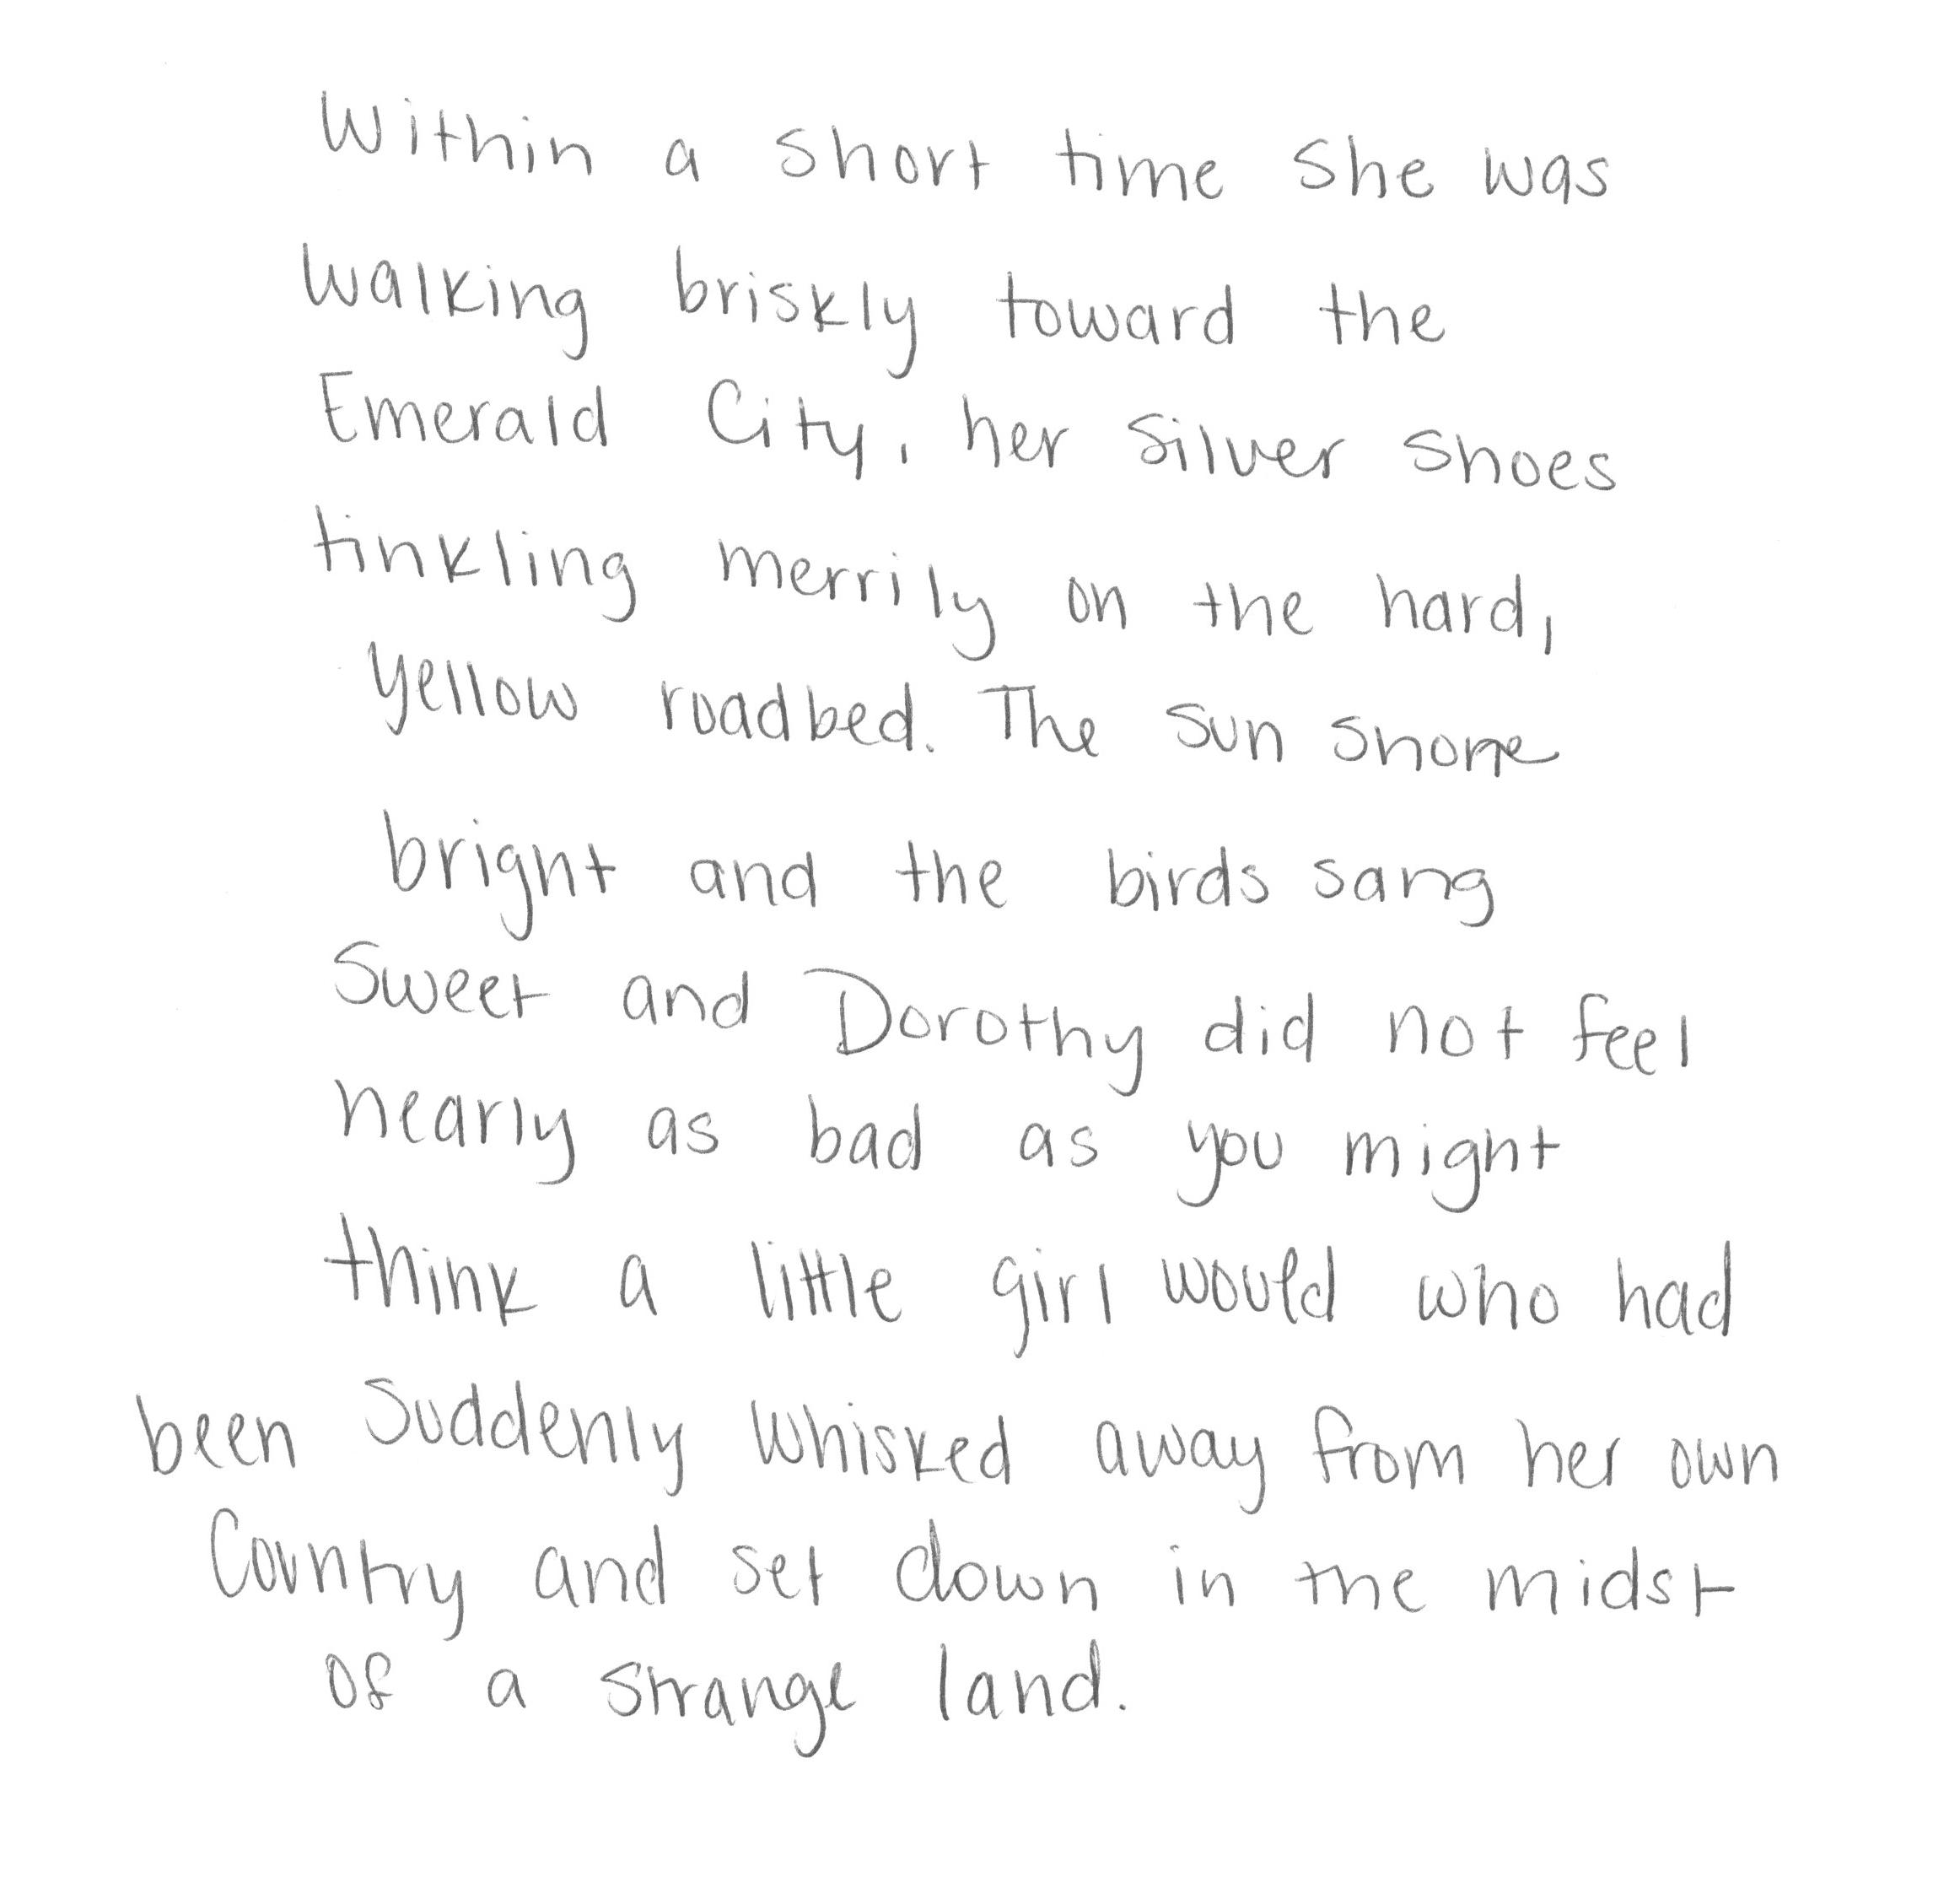 Within a short time she was
walking briskly toward the
Emerald City, her silver shoes
tinkling merrily on the hard,
yellow roadbed. The sun shone
bright and the birds sang
sweet and Dorothy did not feel
nearly as bad as you might
think a little girl would who had
been suddenly whisked away from her own
country and set down in the midst
of a strange land.